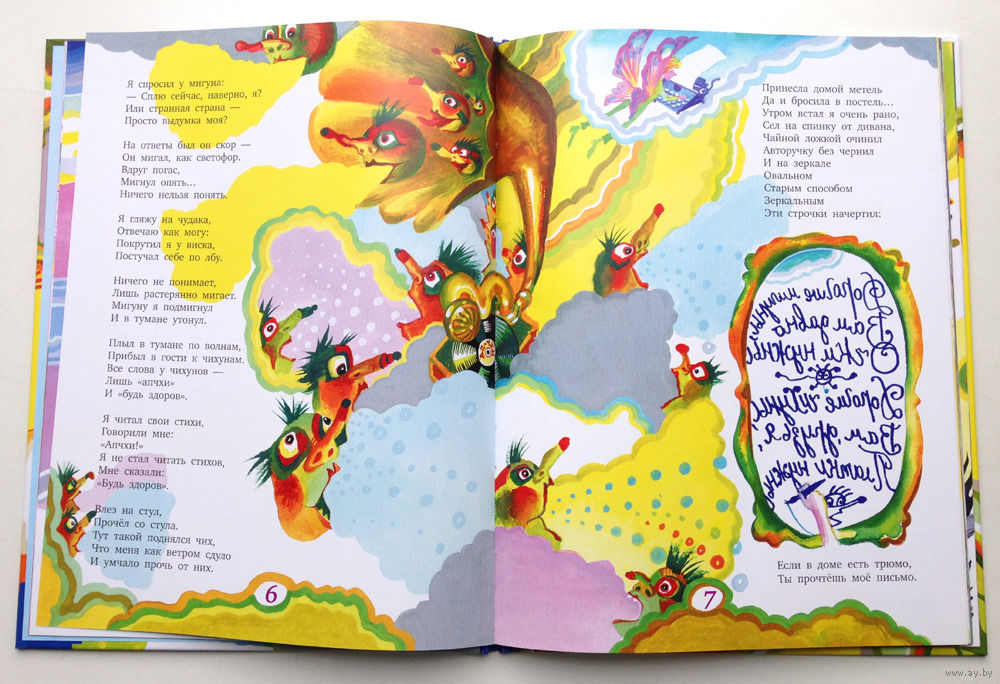 Я спросил у мигуна:
— Сплю сейчас, наверно, я?
Или странная страна —
Просто выдумка моя?
На ответы был он скор —
Он мигал, как светофор.
Вдруг погас,
Мигнул опять...
Ничего нельзя понять.
Я гляжу на чудака,
Отвечаю как могу:
Покрутил я у виска,
Постучал себе по лбу.
Ничего не понимает,
Лишь растерянно мигает.
Мигуну я подмигнул
И в тумане утонул.
Плыл в тумане по волнам,
Прибыл в гости к чихунам.
Все слова у чихунов —
Лишь «апчхи»
И «будь здоров».
Я читал свои стихи,
Говорили мне:
«Апчхи!»
Я не стал читать стихов,
Мне сказали:
«Будь здоров».
Влез на стул,
Прочёл со стула.
Тут такой поднялся чих,
Что меня как ветром сдуло
И умчало прочь от них.
6
Принесла домой метель
Да и бросила в постель...
Утром встал я очень рано,
Сел на спинку от дивана,
Чайной ложкой очинил
Авторучку без чернил
И на зеркале
Овальном
Старым способом
Зеркальным
Эти строчки начертил:
Дорогие мигуны,
Вам давно
Очки нужны!
Дорогие чихуны,
Вам, друзья,
Платки нужны
Если в доме есть трюмо,
Ты прочтёшь моё письмо.
7
www.ay.by